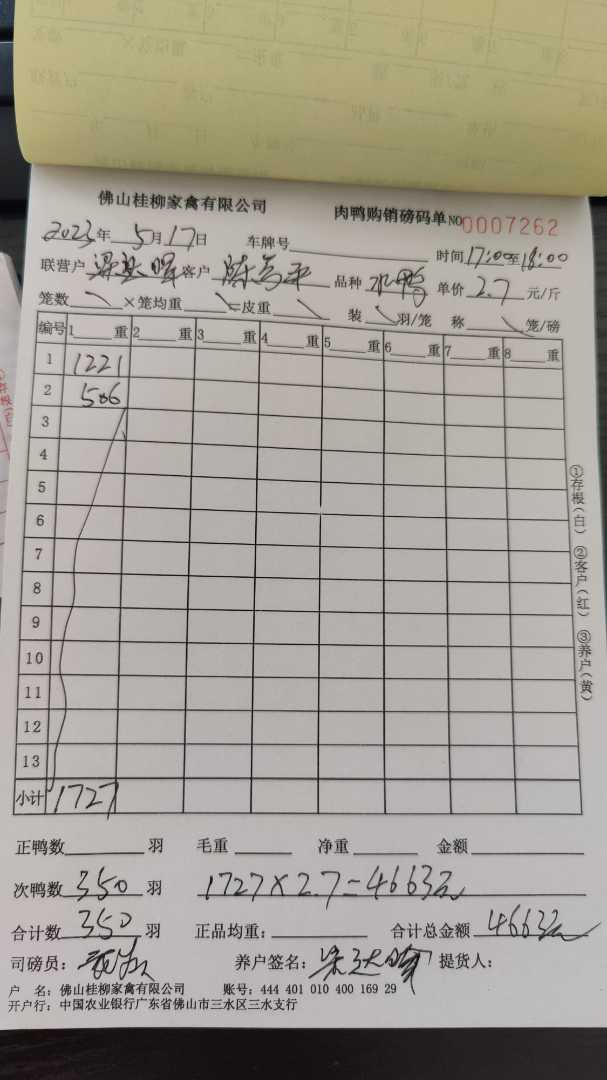 佛山桂柳家禽有限公司 肉鸭购销磅码单 NO 0007262
2023年 5月17日 车牌号 时间17:00至18:00
联营户 客户 品种 水鸭 单价 2.7 元/斤
笼数 ×笼均重 =皮重 装 羽/笼 称 笼/磅
编号 1 重 2 重 3 重 4 重 5 重 6 重 7 重 8 重
1 1221
2 506
3
4
5
6
7
8
9
10
11
12
13
小计 1727
正鸭数 羽 毛重 净重 金额
次鸭数 350 羽 1727×2.7=4663元
合计数 350 羽 正品均重: 合计总金额 4663元
司磅员: 养户签名: 提货人:
户 名: 佛山桂柳家禽有限公司 账号: 444 401 010 400 169 29
开户行: 中国农业银行广东省佛山市三水区三水支行
①存根(白) ②客户(红) ③养户(黄)